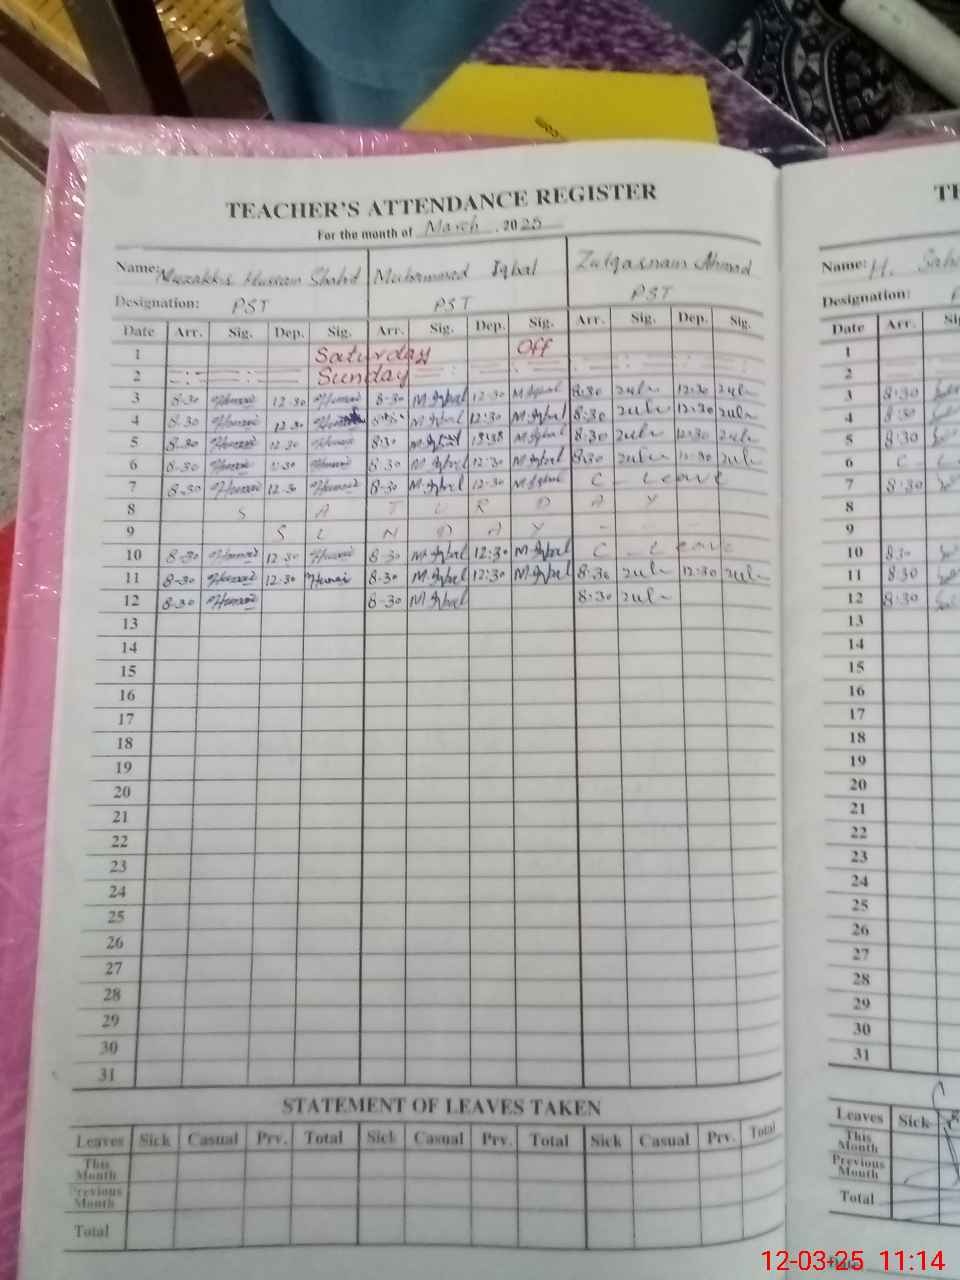 TEACHER'S ATTENDANCE REGISTER
For the month of March, 2025
Name: Hussain Shahid Muhammad Iqbal Zulqarnain Ahmad
Designation: PST PST PST
Date Arr. Sig. Dep. Sig. Arr. Sig. Dep. Sig. Arr. Sig. Dep. Sig.
1 Saturday Off
2 Sunday
3 8-30 12:30 8-30 M.Iqbal 12:30 M.Iqbal 8:30 zulr 12:30 zulr
4 8-30 12:30 M.Iqbal 12:30 M.Iqbal 8:30 zulr 12:30 zulr
5 8-30 12:30 8:30 M.Iqbal M.Iqbal 8:30 zulr 12:30 zulr
6 8-30 8-30 M.Iqbal 12:30 M.Iqbal 8:30 zulr zulr
7 8-30 12-30 8-30 M.Iqbal 12-30 M.Iqbal C - Leave
8 S A T U R D A Y
9 S U N D A Y
10 8-30 12-30 8-30 M.Iqbal 12:30 M.Iqbal C - Leave
11 8-30 12-30 8-30 M.Iqbal 12:30 M.Iqbal 8:30 zulr 12:30 zulr
12 8-30 8-30 M.Iqbal 8:30 zulr
13
14
15
16
17
18
19
20
21
22
23
24
25
26
27
28
29
30
31
STATEMENT OF LEAVES TAKEN
Leaves Sick Casual Prv. Total Sick Casual Prv. Total Sick Casual Prv. Total
This Month
Previous Month
Total
Name: H.
Designation:
Date Arr.
1
2
3 8:30
4 8:30
5 8:30
6 C - L
7 8:30
8
9
10 8:30
11 8:30
12 8:30
13
14
15
16
17
18
19
20
21
22
23
24
25
26
27
28
29
30
31
Leaves Sick
This Month
Previous Month
Total
12-03-25 11:14